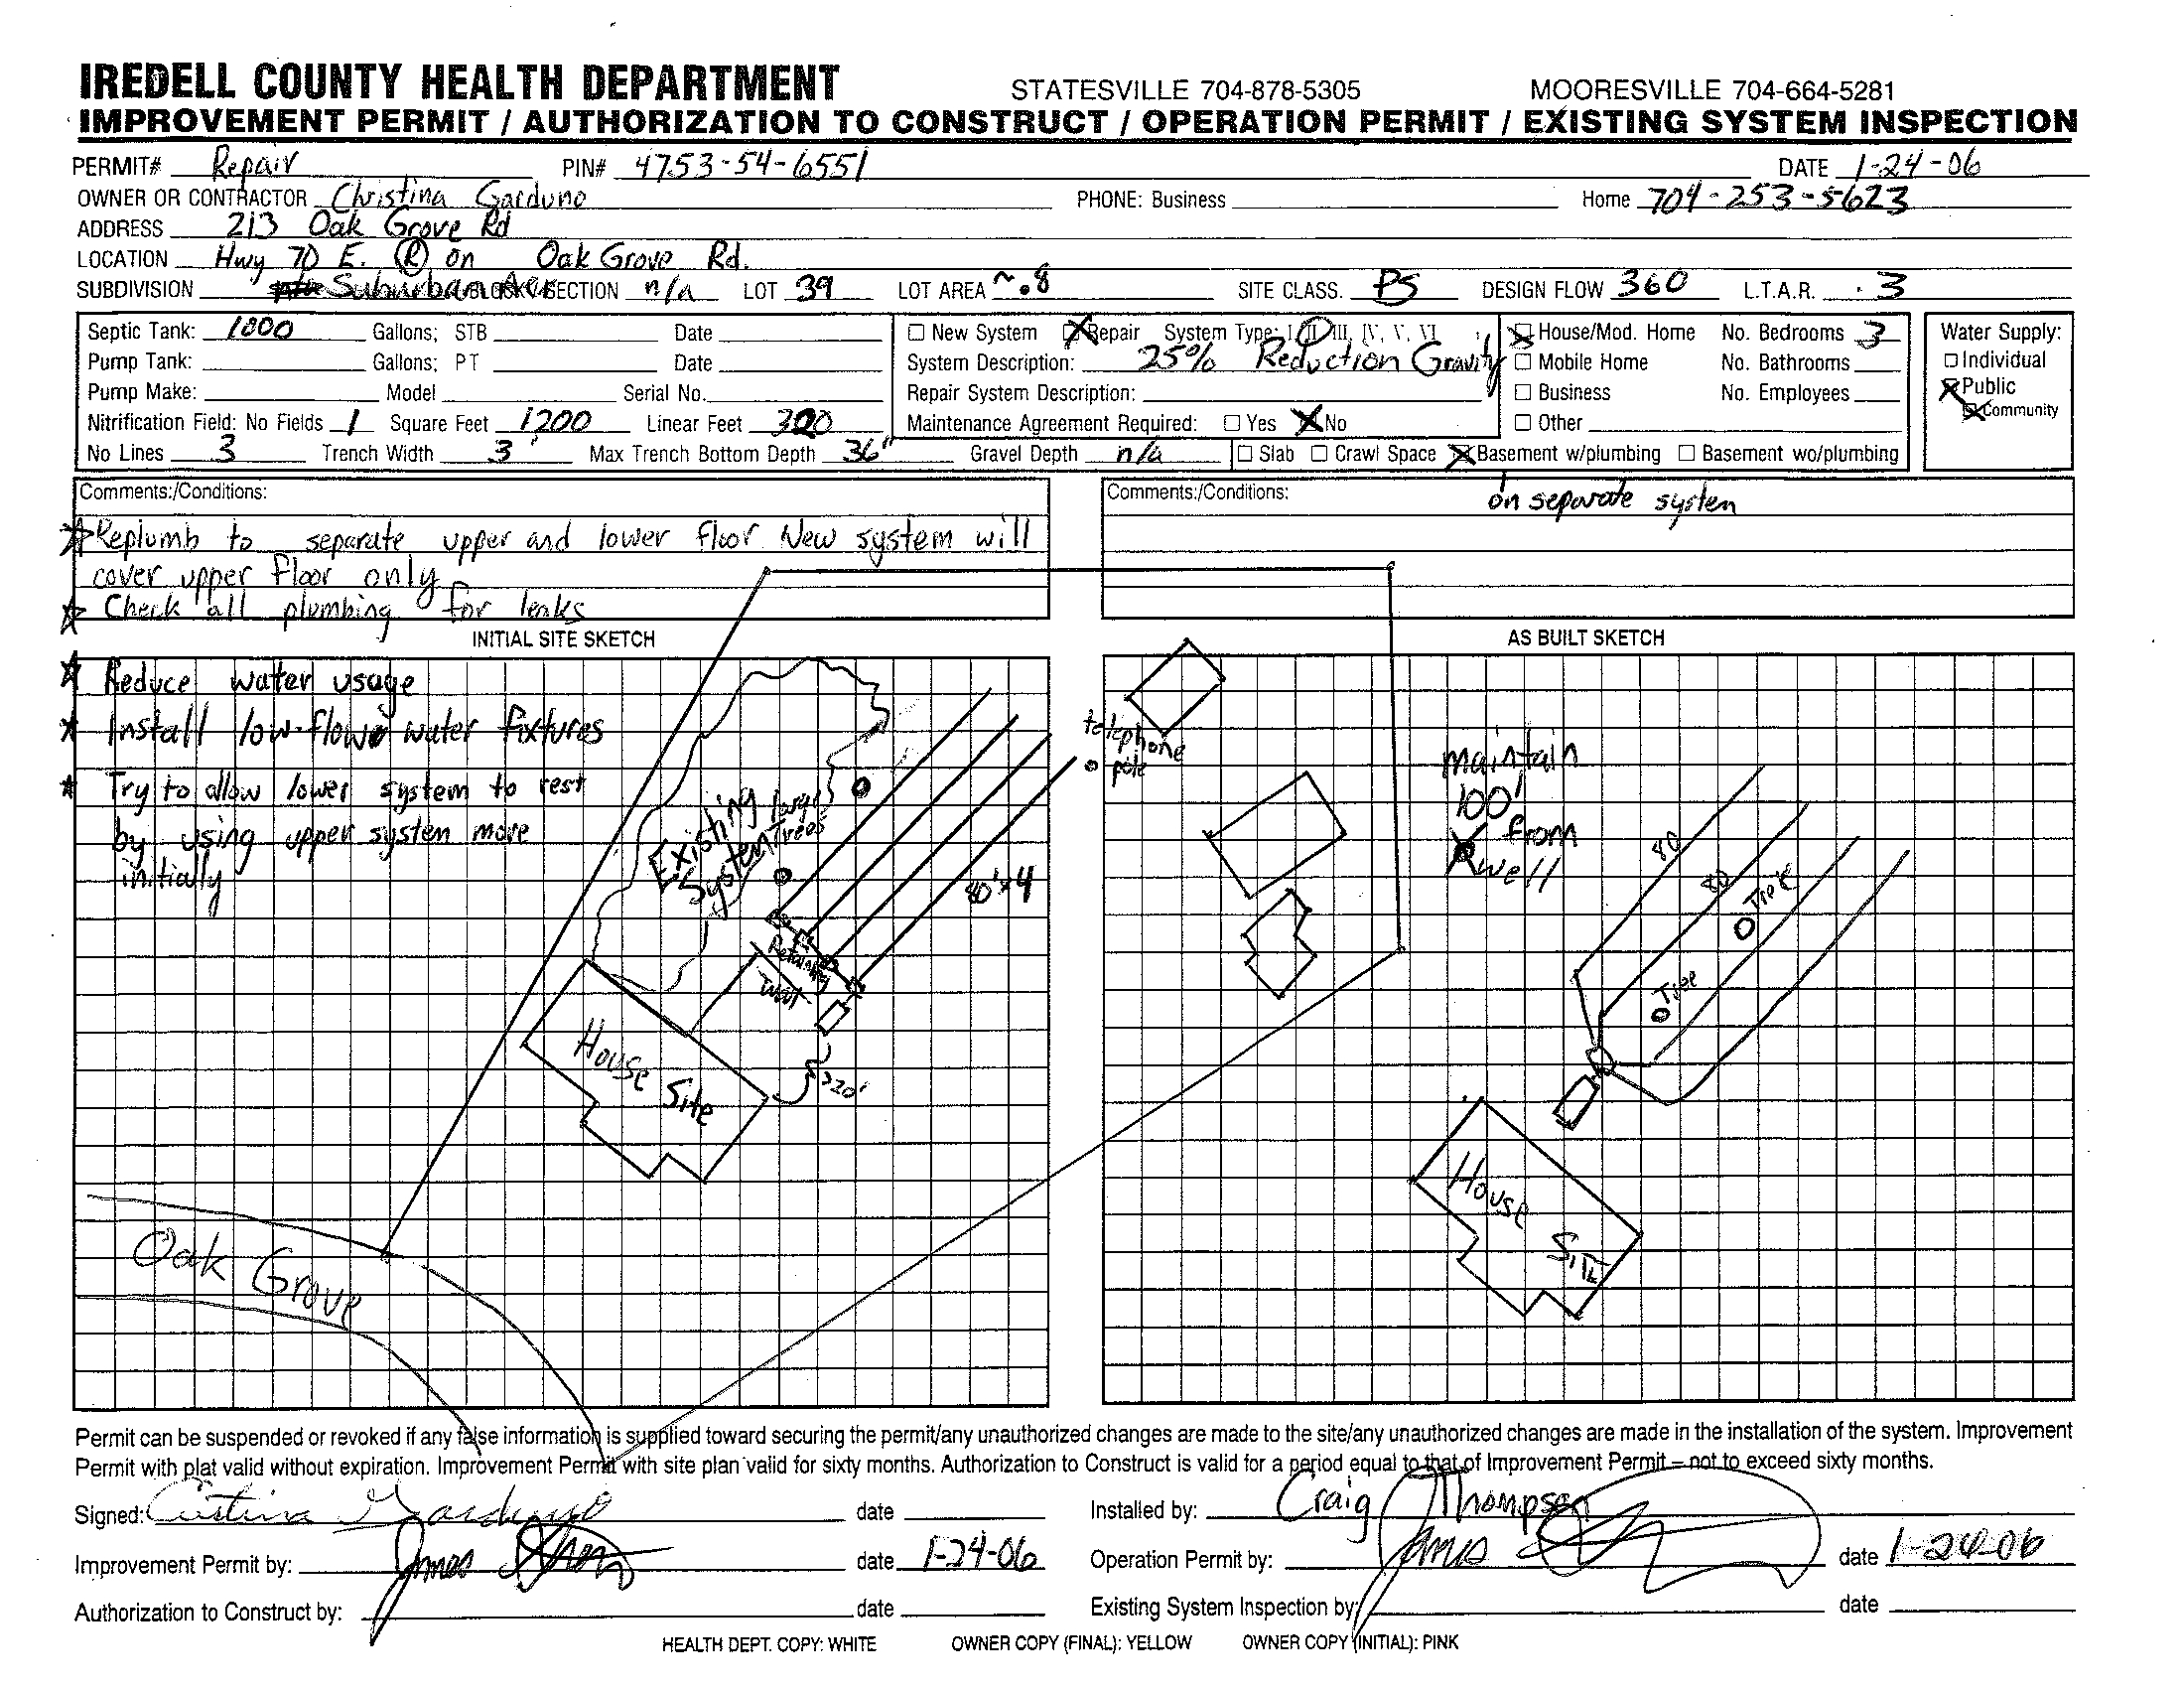 IREDELL COUNTY HEALTH DEPARTMENT STATESVILLE 704-878-5305 MOORESVILLE 704-664-5281
IMPROVEMENT PERMIT / AUTHORIZATION TO CONSTRUCT / OPERATION PERMIT / EXISTING SYSTEM INSPECTION
PERMIT# Repair PIN# 4753-54-6551 DATE 1-24-06
OWNER OR CONTRACTOR Christina Garduno PHONE: Business Home 704-253-5623
ADDRESS 213 Oak Grove Rd
LOCATION Hwy 70 E. (R) on Oak Grove Rd.
SUBDIVISION Suburban Acr SECTION n/a LOT 39 LOT AREA ~.8 SITE CLASS. PS DESIGN FLOW 360 L.T.A.R. .3
Septic Tank: 1000 Gallons; STB Date
Pump Tank: Gallons; PT Date
Pump Make: Model Serial No.
Nitrification Field: No Fields 1 Square Feet 1200 Linear Feet 320
No Lines 3 Trench Width 3' Max Trench Bottom Depth 36" Gravel Depth n/a
New System Repair System Type: I, II, III, IV, V, VI
System Description: 25% Reduction Gravity
Repair System Description:
Maintenance Agreement Required: Yes No
Slab Crawl Space Basement w/plumbing Basement wo/plumbing
House/Mod. Home No. Bedrooms 3
Mobile Home No. Bathrooms
Business No. Employees
Other
Water Supply:
Individual
Public
Community
Comments:/Conditions:
Replumb to separate upper and lower floor New system will
cover upper floor only
Check all plumbing for leaks
Comments:/Conditions: on separate system
INITIAL SITE SKETCH
Reduce water usage
Install low-flow water fixtures
Try to allow lower system to rest
by using upper system more
initially
Existing
System
Large
Trees
80' x 4
Retaining
Wall
House Site
220'
Oak Grove
AS BUILT SKETCH
telephone
pole
maintain
100'
from
well
80
80
Tree
Tree
House
Site
Permit can be suspended or revoked if any false information is supplied toward securing the permit/any unauthorized changes are made to the site/any unauthorized changes are made in the installation of the system. Improvement
Permit with plat valid without expiration. Improvement Permit with site plan valid for sixty months. Authorization to Construct is valid for a period equal to that of Improvement Permit – not to exceed sixty months.
Signed: Cristina Garduño date
Installed by: Craig Thompson
Improvement Permit by: James date 1-24-06
Operation Permit by: James date 1-24-06
Authorization to Construct by: date
Existing System Inspection by: date
HEALTH DEPT. COPY: WHITE OWNER COPY (FINAL): YELLOW OWNER COPY (INITIAL): PINK